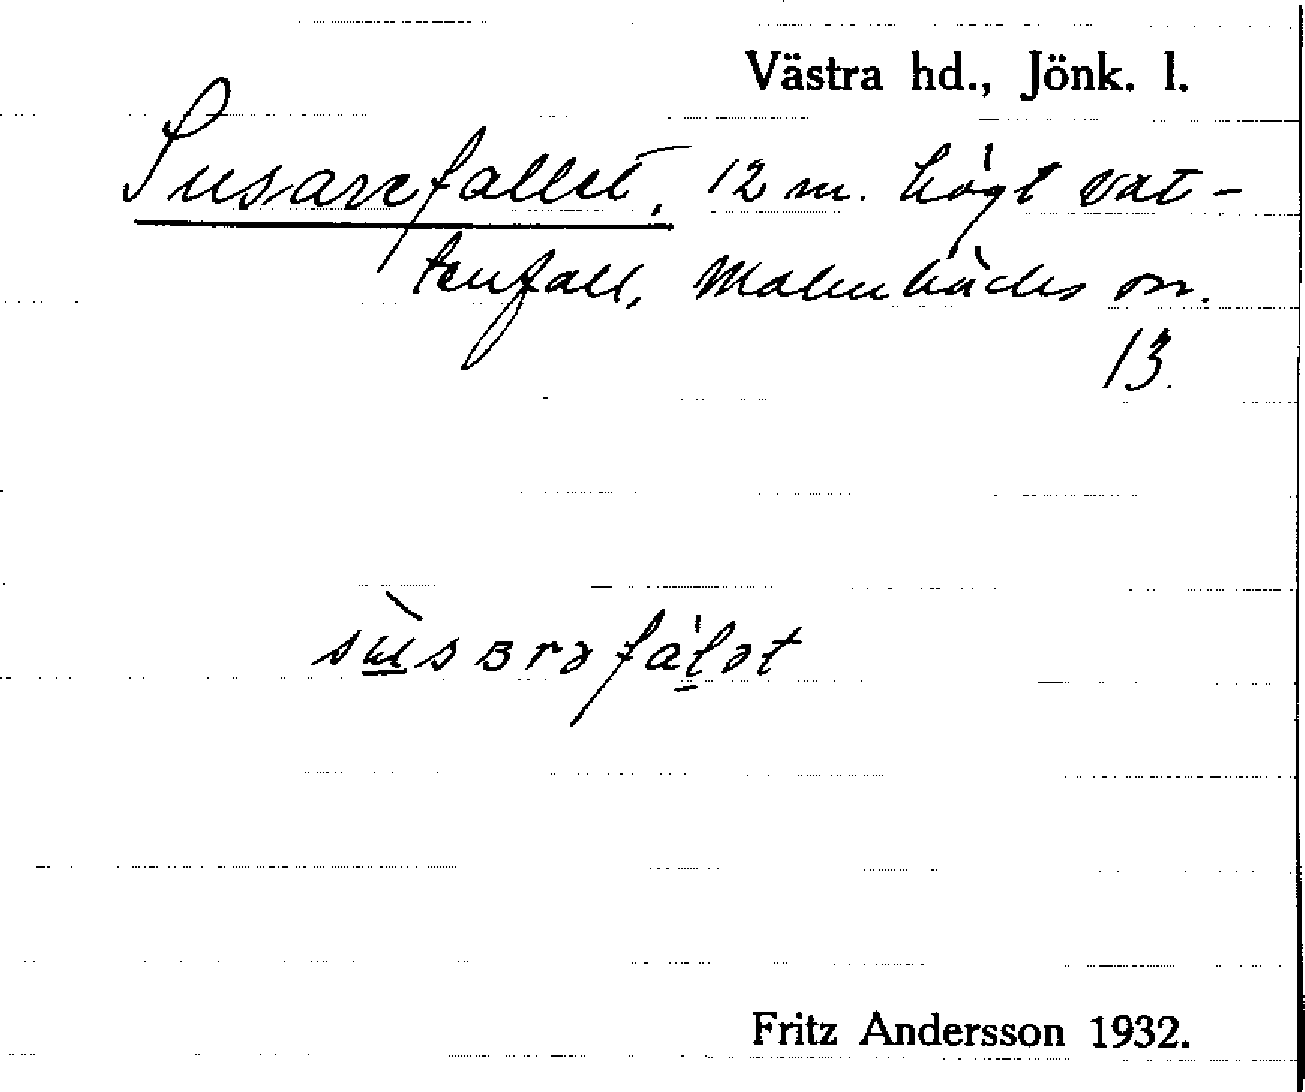 Västra hd., Jönk. l.
Susarefallet, 12 m. högt vat-
tenfall, Malmbäcks sn.
13.
sùsarəfálət
Fritz Andersson 1932.